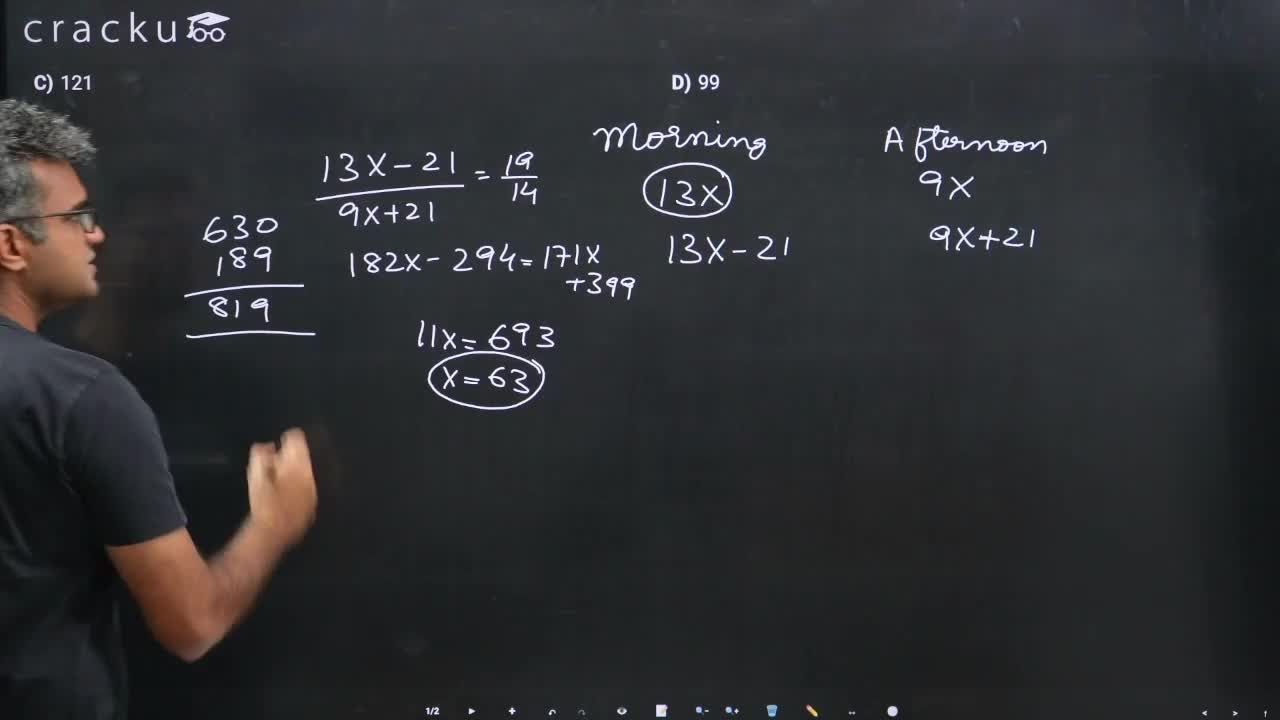 cracku
C) 121
D) 99
Morning
Afternoon
13x - 21 / 9x + 21 = 19/14
13x
9x
630
189
819
182x - 294 = 171x
+ 399
13x - 21
9x + 21
11x = 693
x = 63
1/2